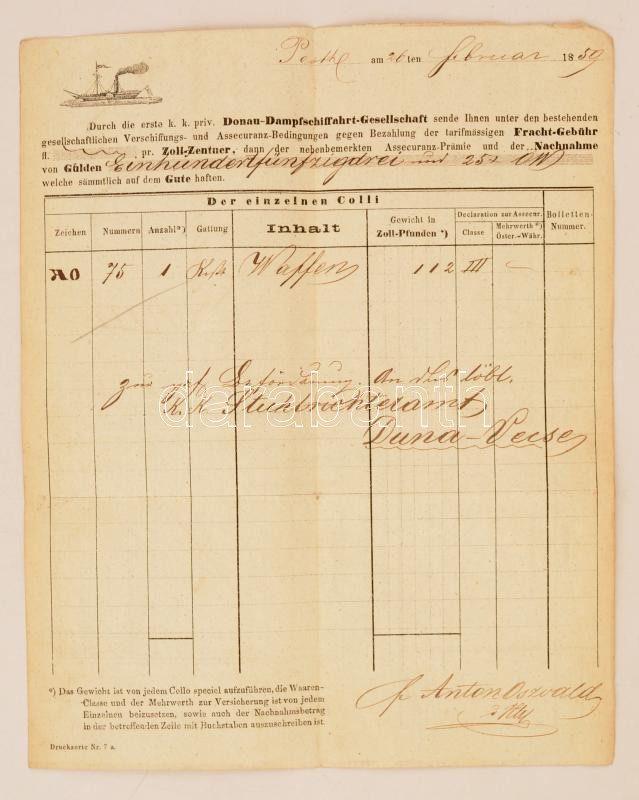 Pesth am 26ten Februar 1859
Durch die erste k. k. priv. Donau-Dampfschiffahrt-Gesellschaft sende Ihnen unter den bestehenden
gesellschaftlichen Verschiffungs- und Assecuranz-Bedingungen gegen Bezahlung der tarifmässigen Fracht-Gebühr
fl. pr. Zoll-Zentner, dann der nebenbemerkten Assecuranz-Prämie und der Nachnahme
von Gülden Einhundertfünfzigdrei und 25
welche sämmtlich auf dem Gute haften.
Der einzelnen Colli
Zeichen Nummern Anzahl*) Gattung Inhalt Gewicht in Zoll-Pfunden *) Declaration zur Assecur. Classe Mehrwerth *) Österr.-Währ. Bolletten-Nummer.
AO 75 1 Waffen 112 III –
zur Beförderung. An das löbl.
K. K. Stuhlrichteramt
Duna-Vecse
*) Das Gewicht ist von jedem Collo speciel aufzuführen, die Waaren-
Classe und der Mehrwerth zur Versicherung ist von jedem
Einzelnen beizusetzen, sowie auch der Nachnahmsbetrag
in der betreffenden Zeile mit Buchstaben auszuschreiben ist.
Anton Oszwald
Drucksorte Nr. 7 a.
darabanth